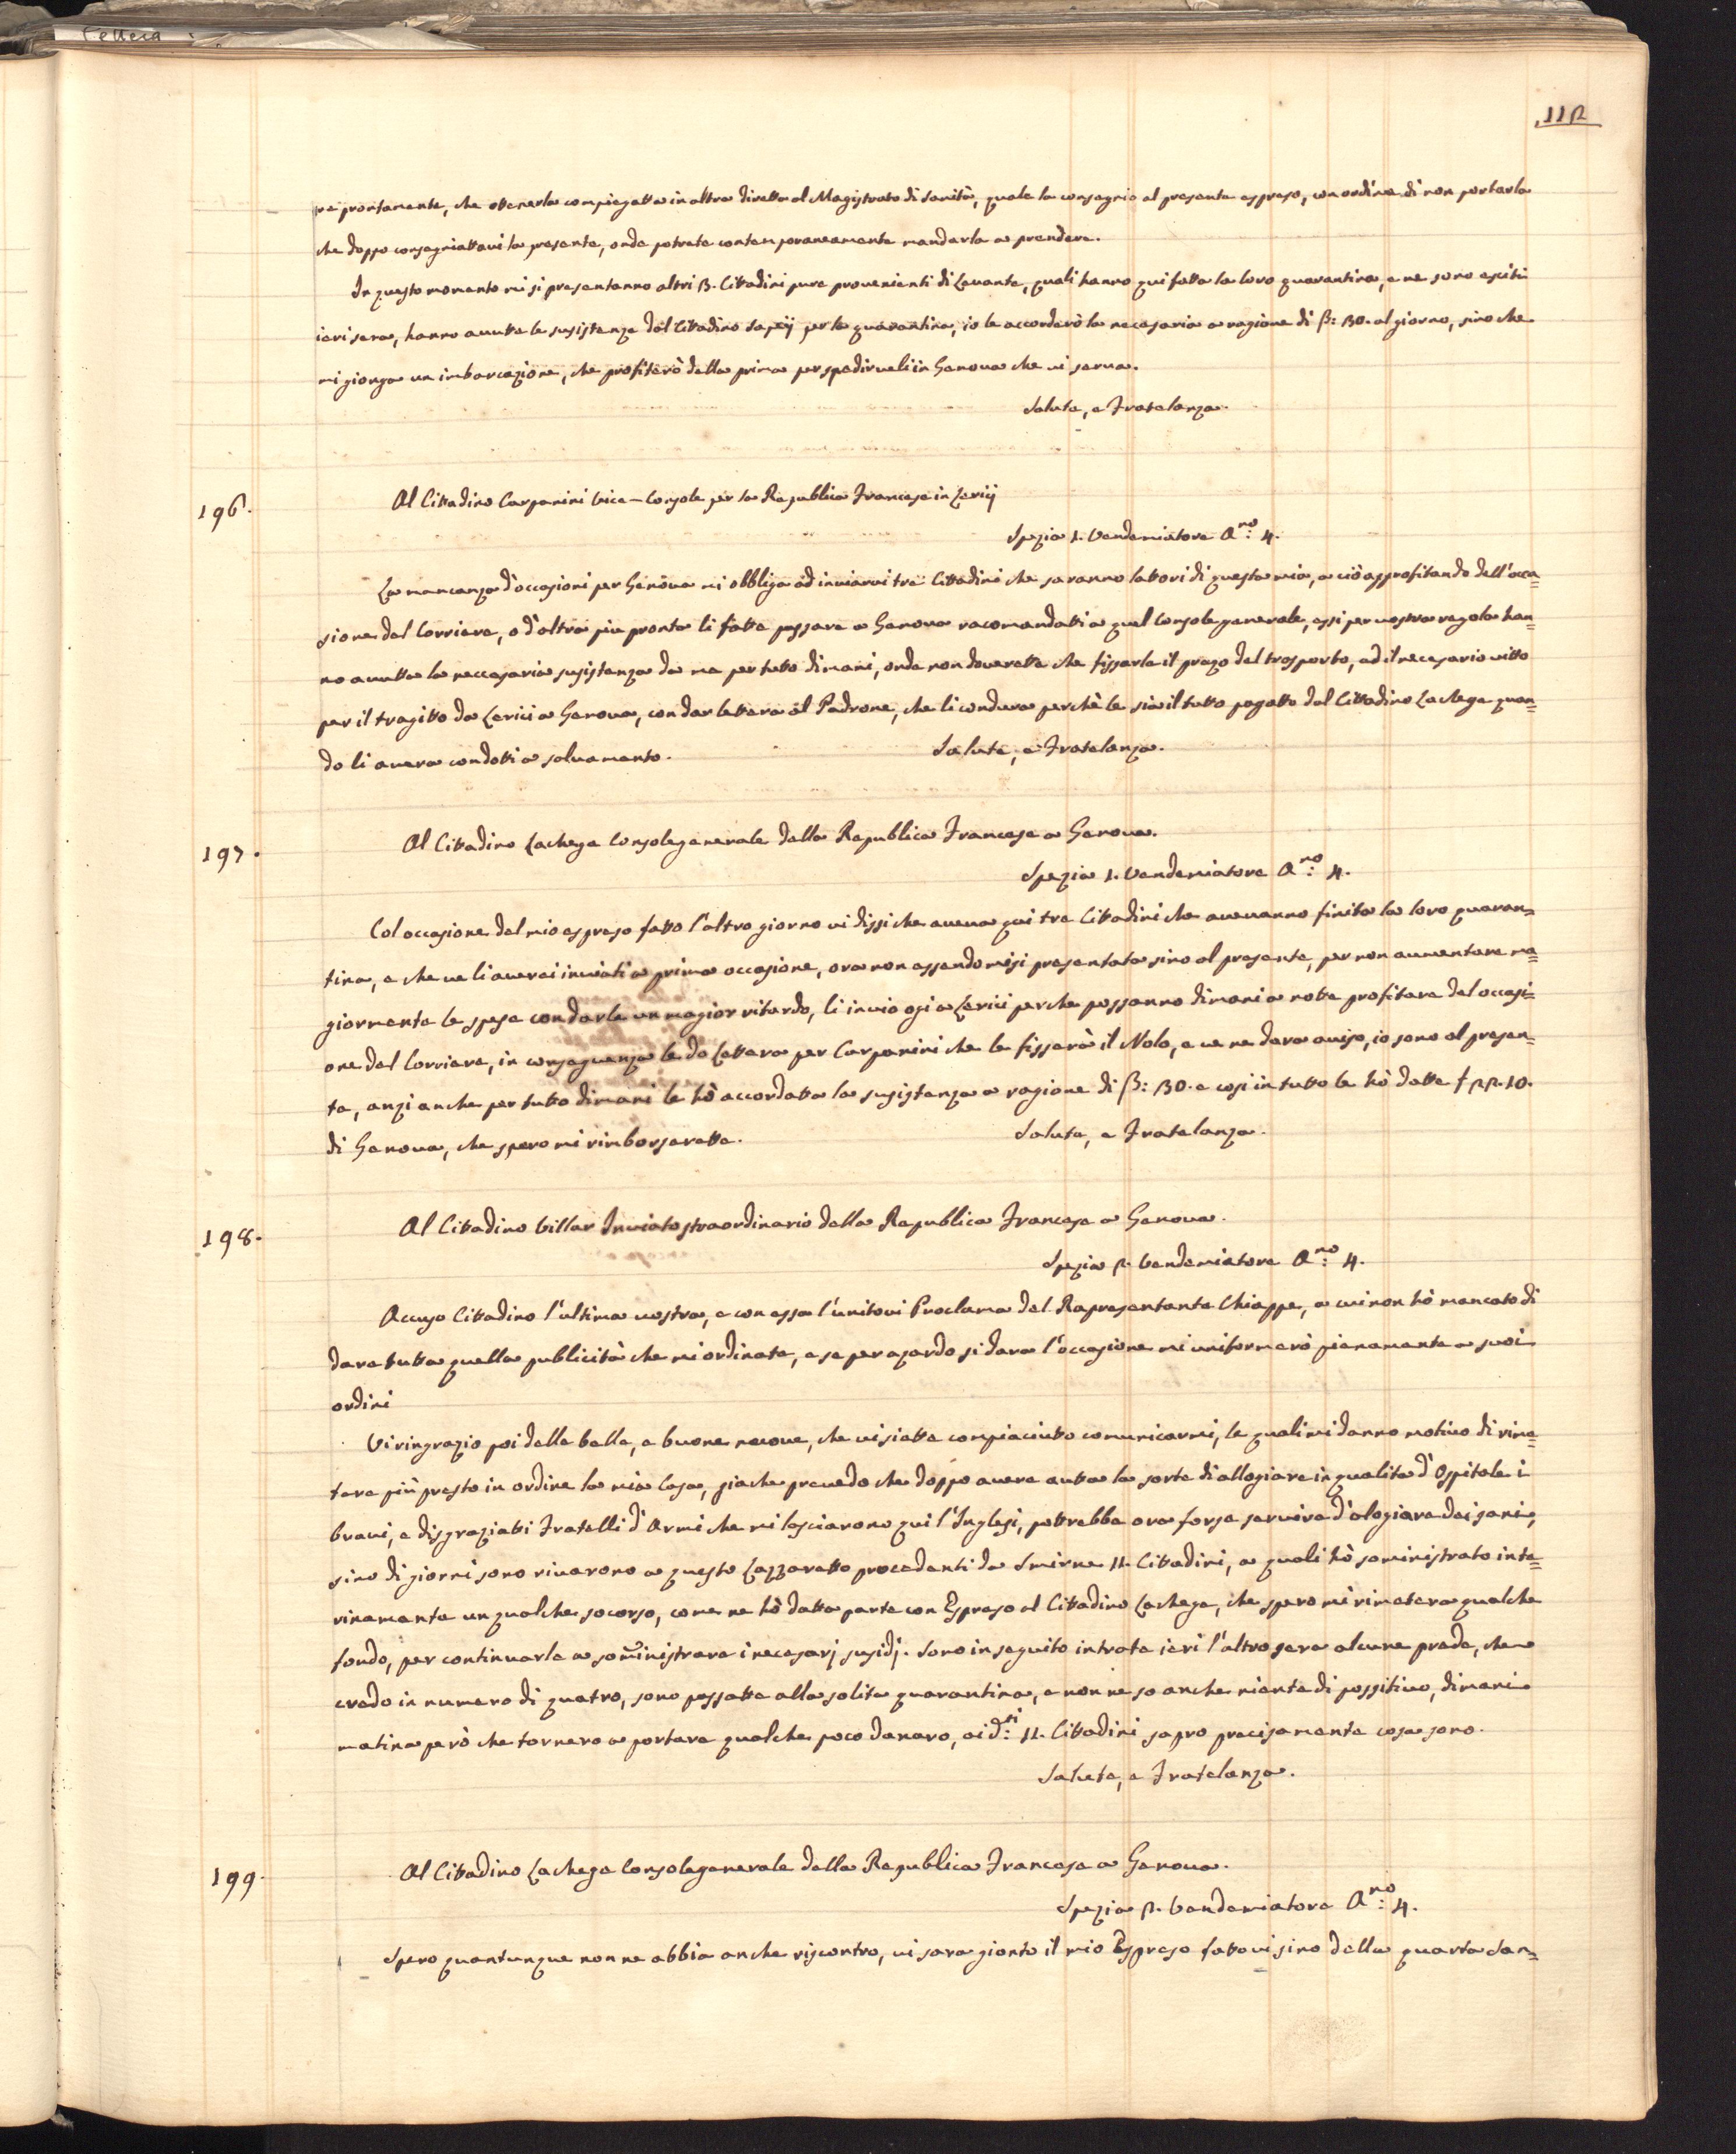 112
re prontamente, che ottenerla compiegatta in altra diretta al Magistrato di Sanità, quale la consegnio al presente espreso, con ordine di non portarla
che doppo consegniattavi la presente, onde potrete contemporaneamente mandarla a prendere.
In questo momento mi si presentanno altri 3. Cittadini pure provenienti di Levante, quali hanno qui fatta la loro quarantina, e ne sono esciti
ieri sera, hanno auutta le susistenze dal Cittadino per la quarantina, io le accorderò la necesaria a ragione di ß: 30. al giorno, sino che
mi gionga un imbarcazione, che profiterò della prima per spedirveli in Genova che vi serva.
Salute, e Fratelanza.
196.
Al Cittadino Carpanini Vice-Console per la Republica Francese in Lerici
Spezia 1. Vendemiatore A.no 4.
La mancanza d'occasioni per Genova mi obbliga ad inviarvi tre Cittadini che saranno lattori di questa mia, a ciò approfitando dell'occa=
sione del Corriere, o d'altra più pronta li fatte passare a Genova racomandati a quel Console generale, essi per vostra regola han=
no auutta la neccesaria susistenza da me per tutto dimani, onde non doverette che fissarle il prezo del trasporto, ed il necesario vitto
per il tragitto da Lerici a Genova, con dar lettera al Padrone, che li condura perchè le sia il tutto pagatto dal Cittadino Lachege quan=
do li avera condotti a salvamento.
Salute, e Fratelanza.
197.
Al Cittadino Lachege Console generale della Republica Francese a Genova.
Spezia 1. Vendemiatore A.no 4.
Col occasione del mio espreso fatto l'altro giorno vi dissi che aveva qui tre Cittadini che avevanno finita la loro quaran=
tina, e che ve li averei inviati a prima occasione, ora non essendomisi presentata sino al presente, per non aumentare ma=
giormente le spese con darle un magior ritardo, li invio ogi a Lerici perche possanno dimani a notte profitare del occasi=
one del Corriere, in conseguenza le do Lettera per Carpanini che le fisserà il Nolo, e ve ne dara aviso, io sono al presen=
te, anzi anche per tutto dimani le hò accordatta la susistenza a ragione di ß: 30. e cosi in tutto le hò datte £ 22.10.
di Genova, che spero mi rimborserette.
Salute, e Fratelanza.
198.
Al Cittadino Villar Inviato straordinario della Republica Francese a Genova.
Spezia 2. Vendemiatore A.no 4.
Accuso Cittadino l'ultima vostra, e con essa l'unitovi Proclama del Rapresentante Chiappe, a cui non hò mancato di
dare tutta quella publicità che mi ordinate, e se per azardo si dara l'occasione mi uniformerò pienamente a suoi
ordini
Vi ringrazio poi delle belle, e buone nuove, che vi siatte compiaciutto comunicarmi, le quali mi danno motivo di rime=
tere più presto in ordine la mia Casa, giache prevedo che doppo avere autta la sorte di allogiare in qualità d'Ospitale i
bravi, e disgraziati Fratelli d'Armi che mi lasciarono qui l'Inglesi, pottrebbe ora forse servire d'alogiare dei sani,
sino di giorni sono rivarono a questo Lazzaretto procedenti da Smirne 11. Cittadini, a quali hò soministrato inte=
rinamente un qualche socorso, come ne hò datta parte con Espreso al Cittadino Lachege, che spero mi rimetera qualche
fondo, per continuarle a somministrare i necesarj susidj. Sono in seguito intrate ieri l'altro sera alcune prede, che
credo in numero di quatro, sono passatte alla solita quarantina, e non ne so anche niente di possitivo, dimani
matina però che tornero a portare qualche poco danaro, ai d.ti 11. Cittadini sapro precisamente cosa sono.
Salute, e Fratelanza.
199.
Al Cittadino Lachege Console generale della Republica Francese a Genova.
Spezia 2. Vendemiatore A.no 4.
Spero quantunque non ne abbia anche riscontro, vi sara gionto il mio Espreso fattovi sino della quarta San=